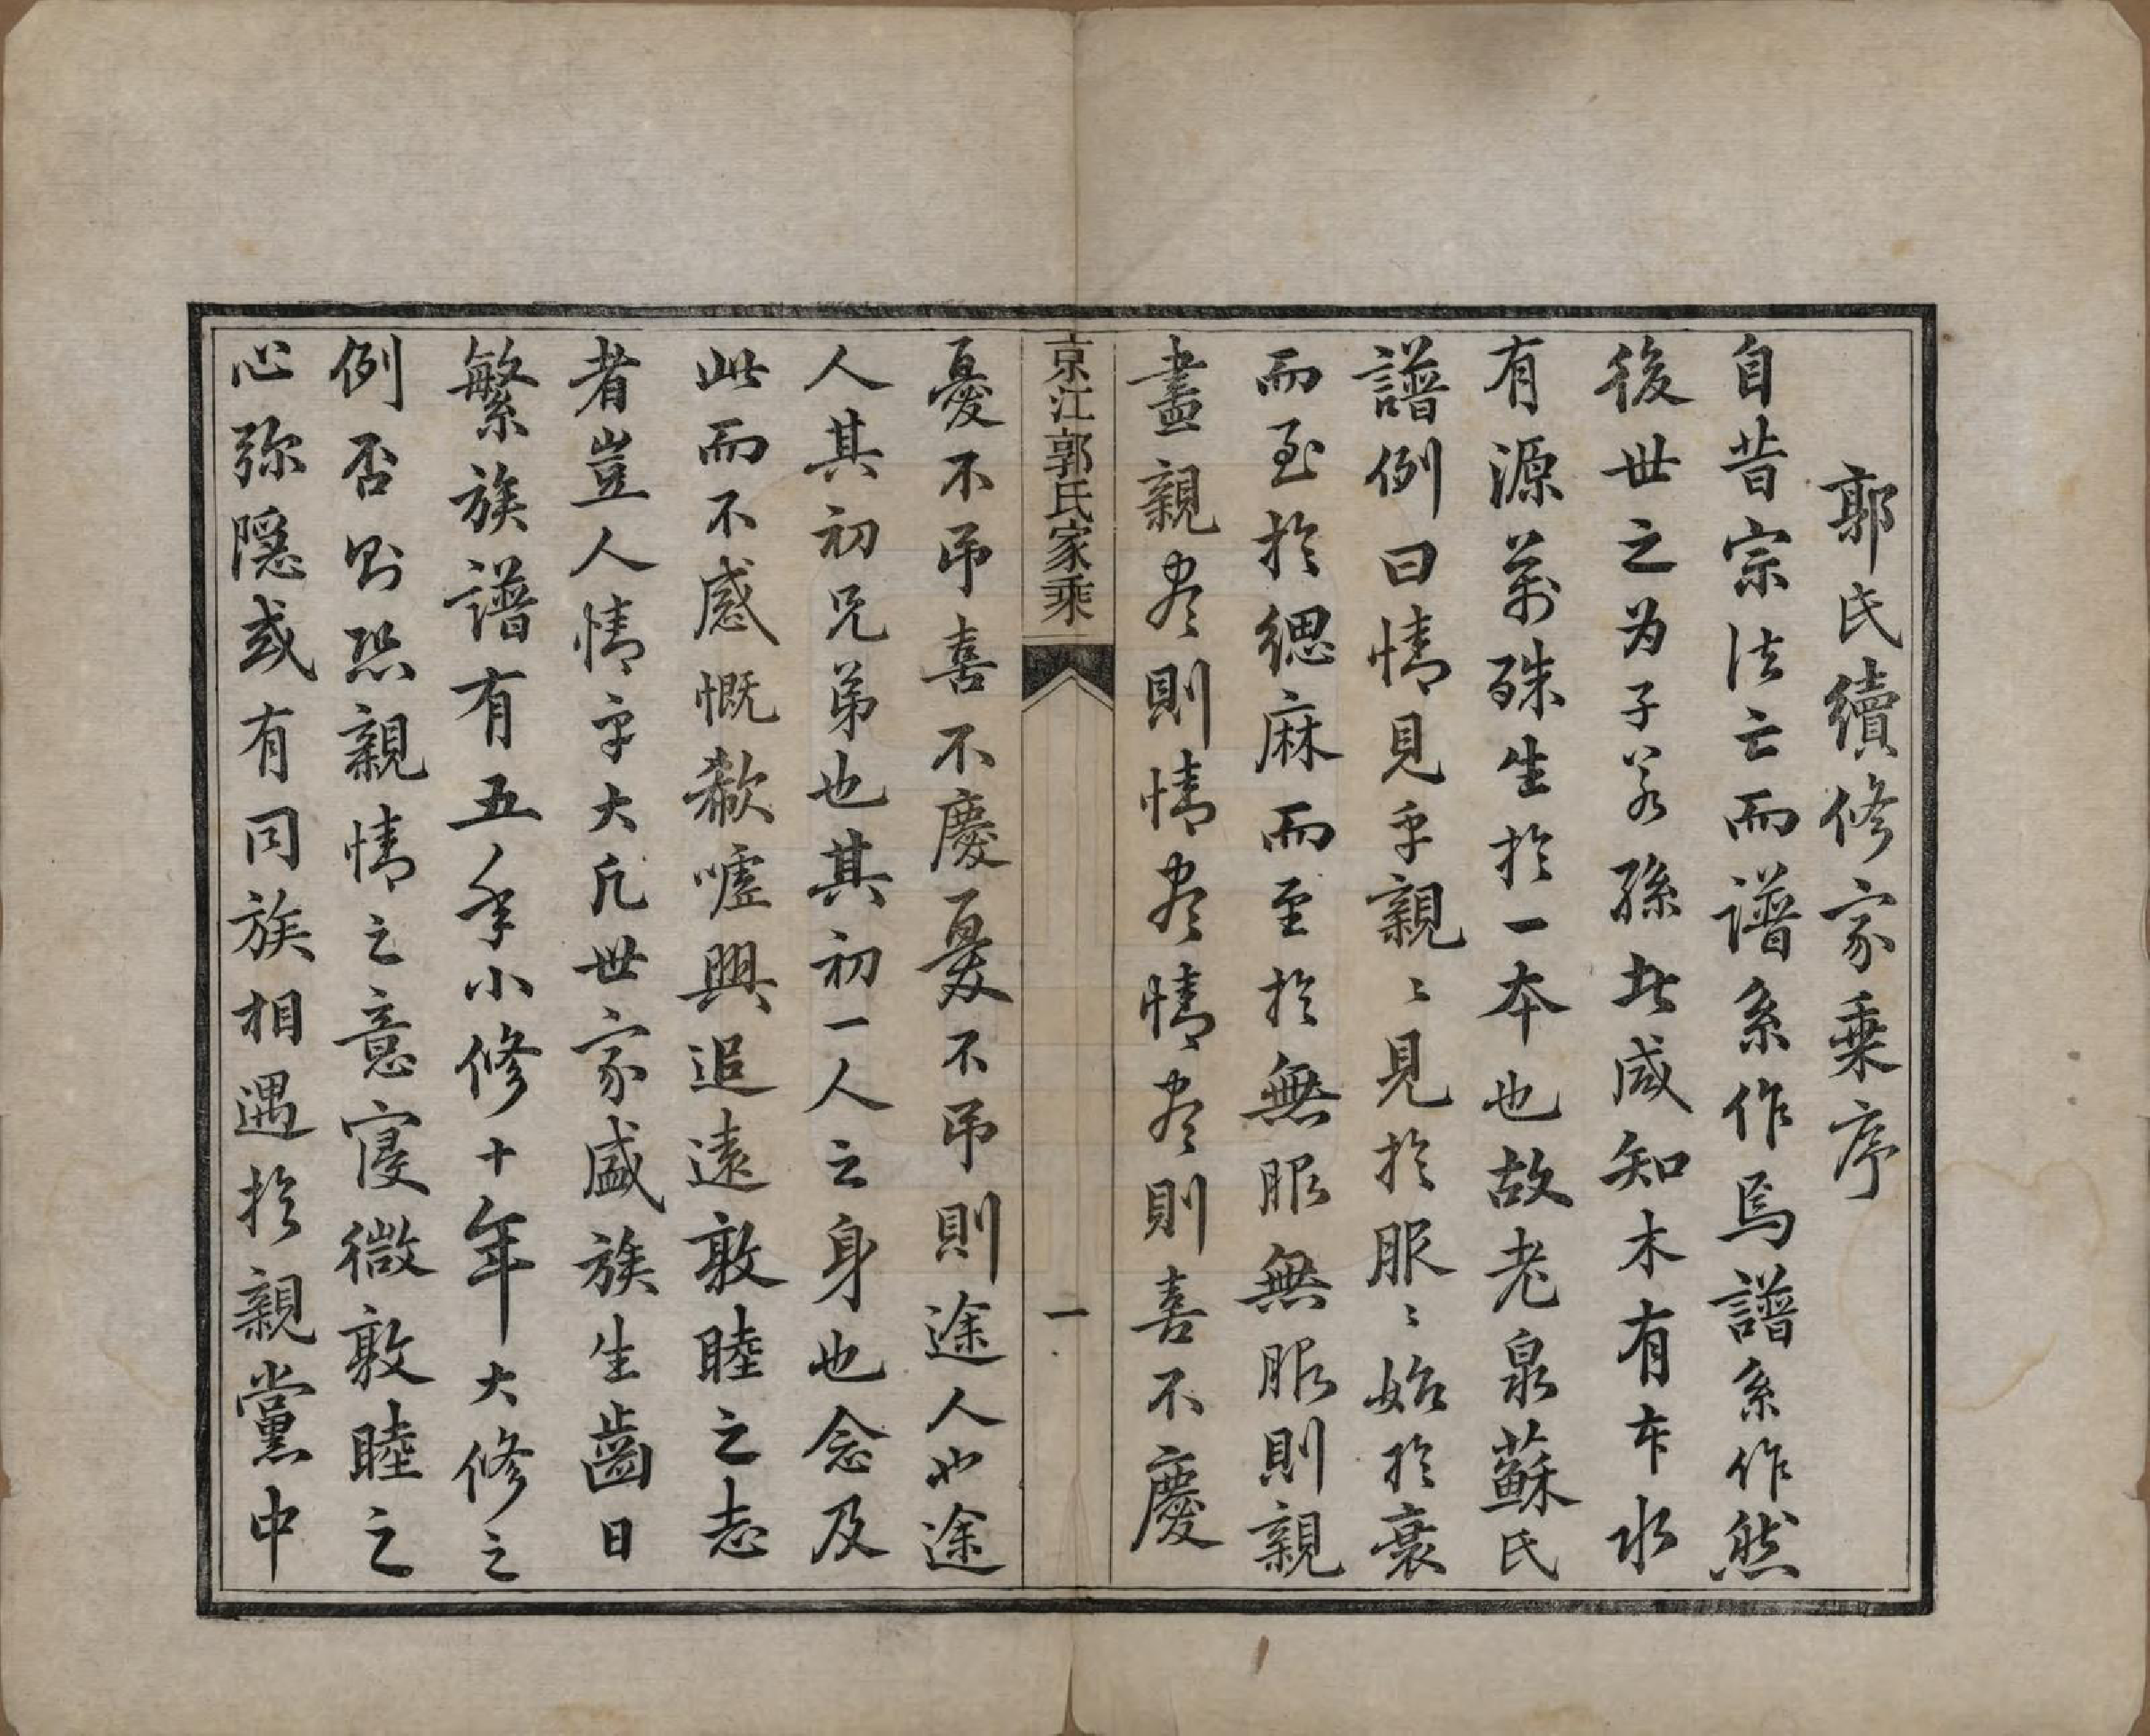 郭氏續修家乗序
自昔宗法亡而譜系作焉譜系作然
後世之为子若孫者咸知木有本水
有源萬殊生於一本也故老泉蘇氏
譜例曰情見乎親〻見於服〻始於衰
而至於緦麻而至於無服無服則親
盡親盡則情盡情盡則喜不慶
京江郭氏家乘
一
憂不弔喜不慶憂不弔則途人也途
人其初兄弟也其初一人之身也念及
此而不感慨欷噓興追遠敦睦之志
者豈人情乎大凡世家盛族生齒日
繁族譜有五年小修十年大修之
例否則恐親情之意寖微敦睦之
心弥隱或有同族相遇於親黨中